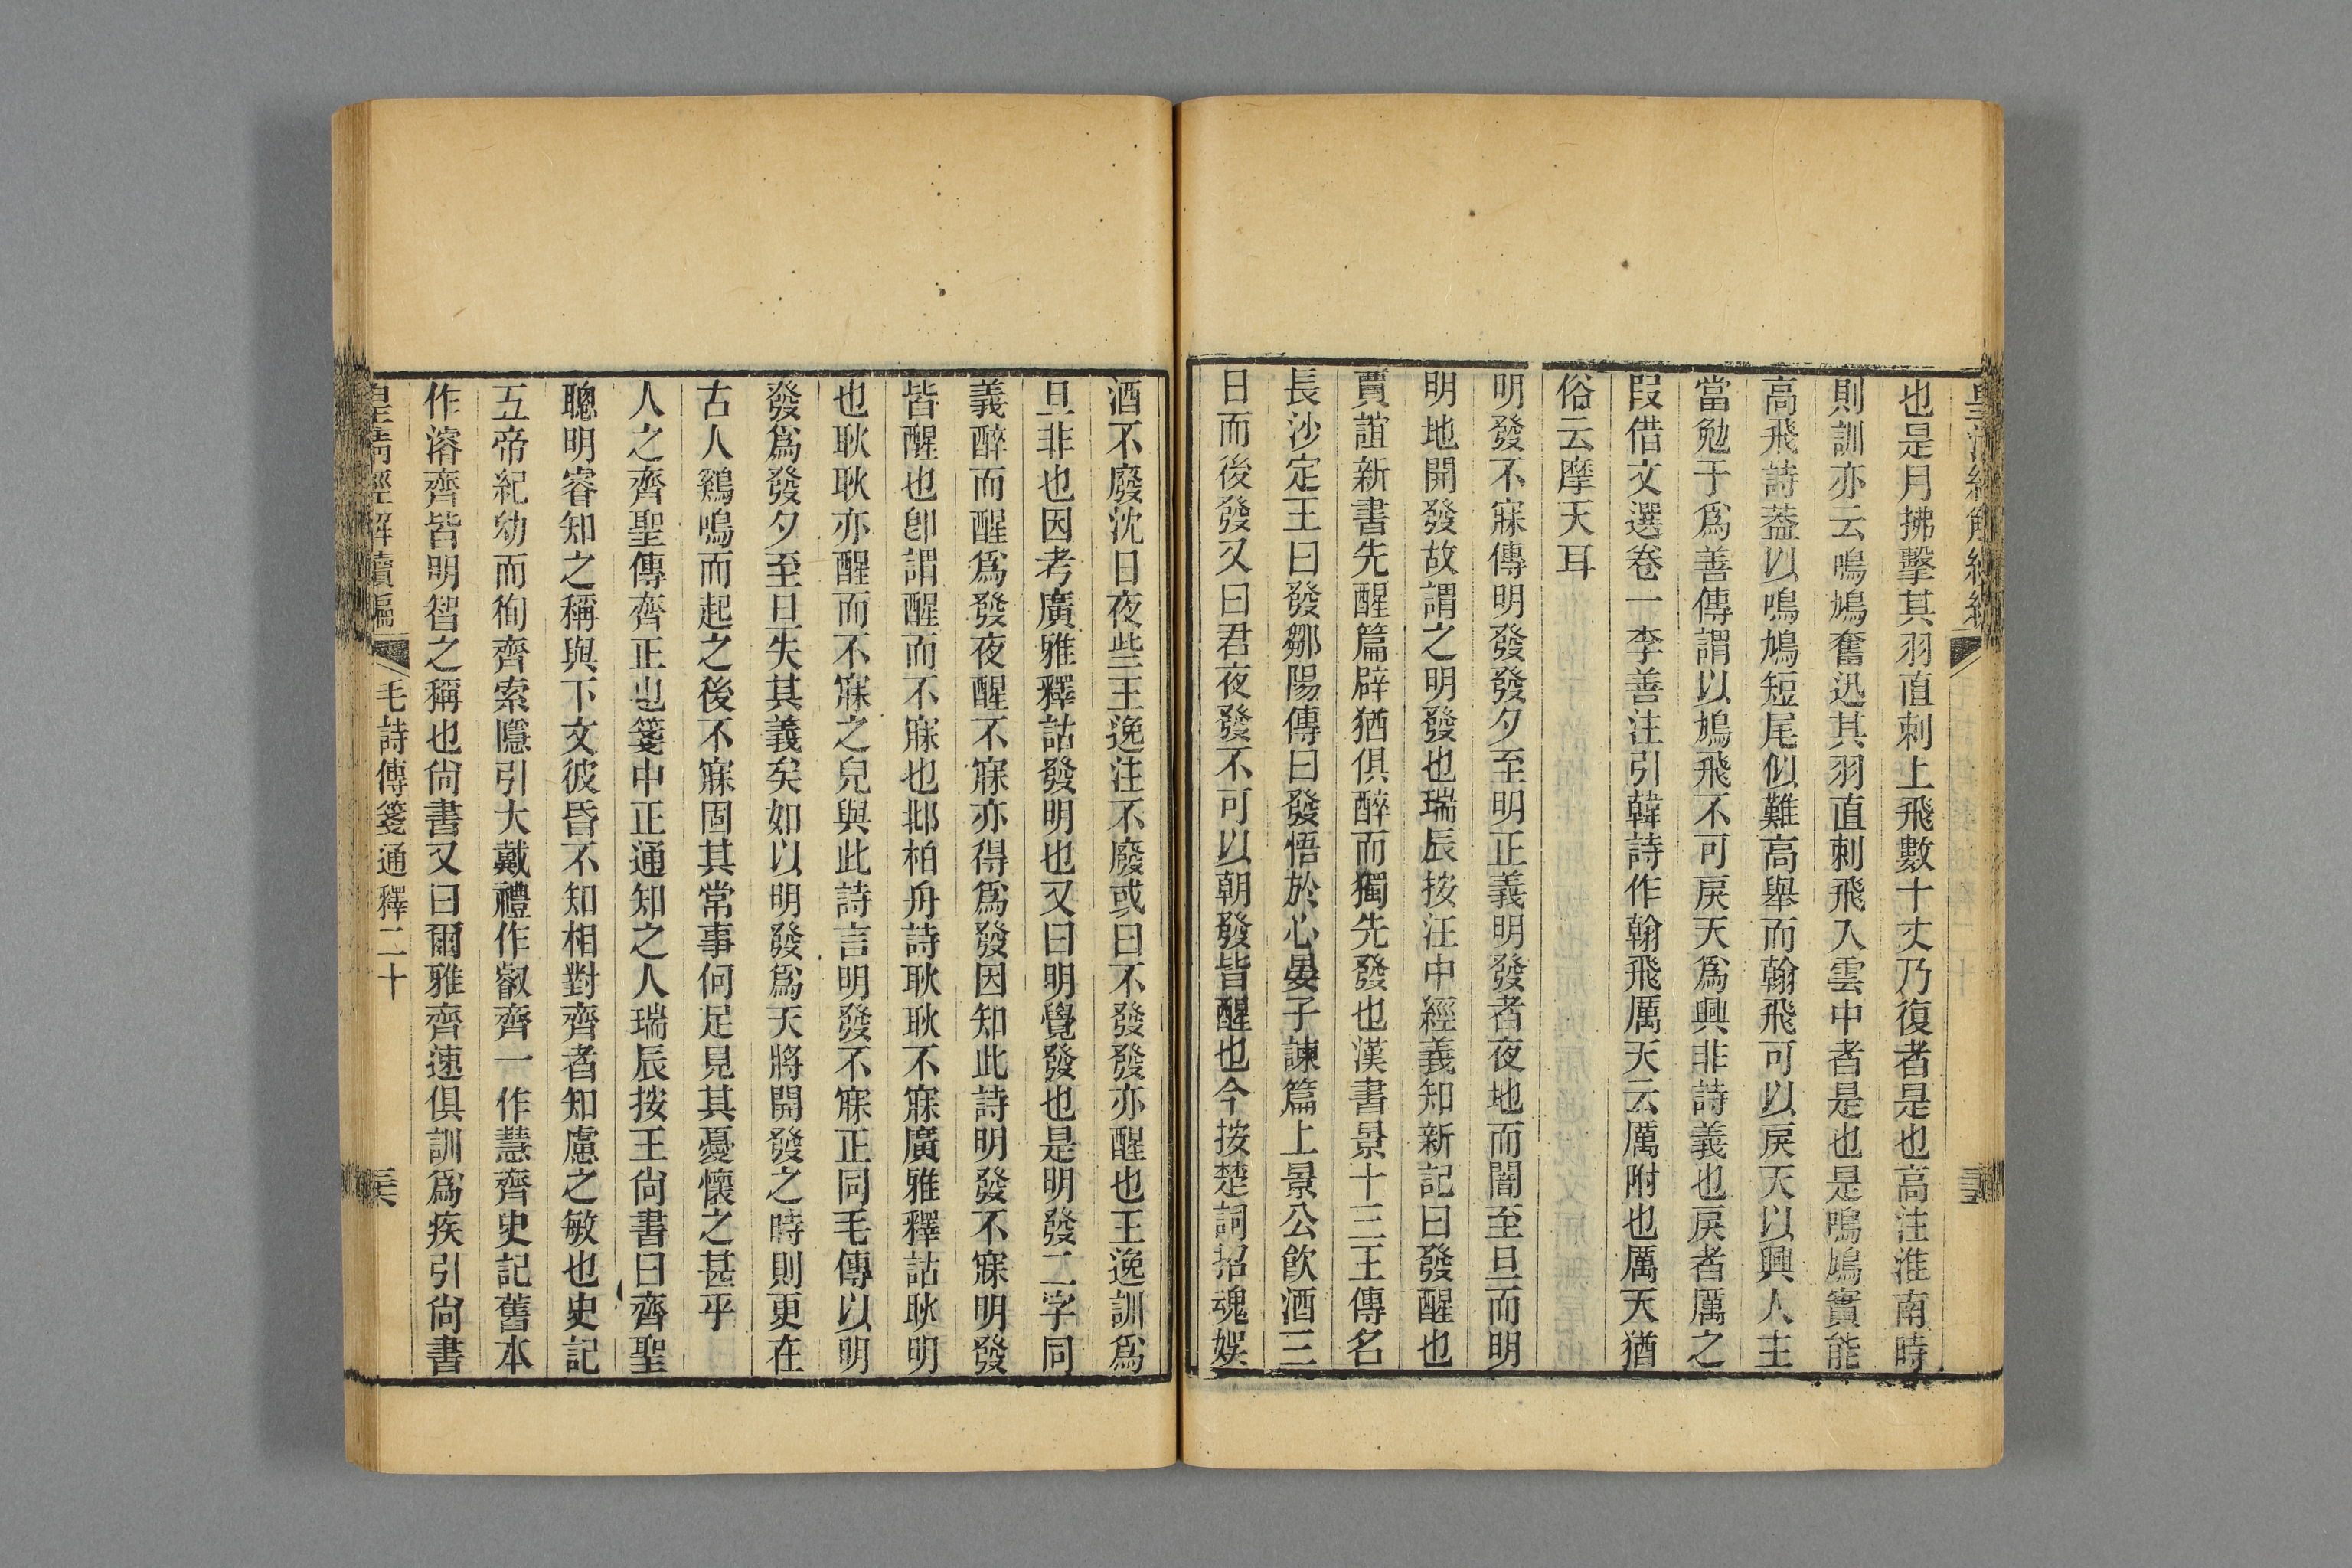 也是月拂擊其羽直刺上飛數十丈乃復者是也高注淮南時
則訓亦云鳴鳩奮迅其羽直刺飛入雲中者是也是鳴鳩實能
高飛詩葢以鳴鳩短尾似難高舉而翰飛可以戾天以興人主
當勉于爲善傳謂以鳩飛不可戾天爲興非詩義也戾者厲之
叚借文選卷一李善注引韓詩作翰飛厲天云厲附也厲天猶
俗云摩天耳
明發不寐傳明發發夕至明正義明發者夜地而闇至旦而明
明地開發故謂之明發也瑞辰按汪中經義知新記曰發醒也
賈誼新書先醒篇辟猶俱醉而獨先發也漢書景十三王傳名
長沙定王曰發鄒陽傳曰發悟於心晏子諫篇上景公飮酒三
日而後發又曰君夜發不可以朝發皆醒也今按楚詞招魂娛
酒不廢沈日夜些王逸注不廢或曰不發發亦醒也王逸訓爲
旦非也因考廣雅釋詁發明也又曰明覺發也是明發二字同
義醉而醒爲發夜醒不寐亦得爲發因知此詩明發不寐明發
皆醒也卽謂醒而不寐也邶柏舟詩耿耿不寐廣雅釋詁耿明
也耿耿亦醒而不寐之皃與此詩言明發不寐正同毛傳以明
發爲發夕至旦失其義矣如以明發爲天將開發之時則更在
古人鷄鳴而起之後不寐固其常事何足見其憂懷之甚乎
人之齊聖傳齊正也箋中正通知之人瑞辰按王尙書曰齊聖
聰明睿知之稱與下文彼昏不知相對齊者知慮之敏也史記
五帝紀幼而徇齊索隱引大戴禮作叡齊一作慧齊史記舊本
作濬齊皆明智之稱也尙書又曰爾雅齊速俱訓爲疾引尙書
皇淸經解續編
毛詩傳箋通釋二十